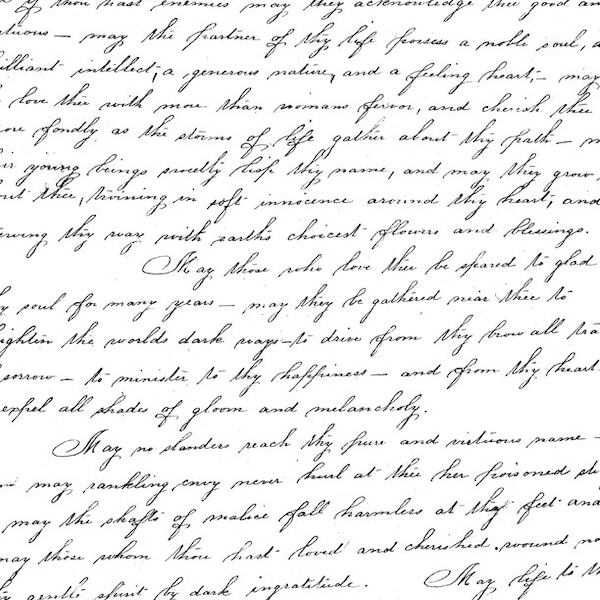 if thou hast enemies may they acknowledge thee good an
rtuous — may the partner of thy life possess a noble soul, a
illiant intellect, a generous nature, and a feeling heart, — may
love thee with more than womans fervor, and cherish thee
ore fondly as the storms of life gather about thy path —
ir young beings sweetly lisp thy name, and may they grow
out thee, twining in soft innocence around thy heart, and
ewing thy way with earths choicest flowers and blessings.
May those who love thee be spared to glad
y soul for many years — may they be gathered near thee to
ighten the worlds dark ways — to drive from thy brow all tra
sorrow — to minister to thy happiness — and from thy heart
expel all shades of gloom and melancholy.
May no slanders reach thy pure and virtuous name —
may rankling envy never hurl at thee her poisoned st
may the shafts of malice fall harmless at thy feet and
may those whom thou hast loved and cherished, wound no
hy gentle spirit by dark ingratitude. May life to th